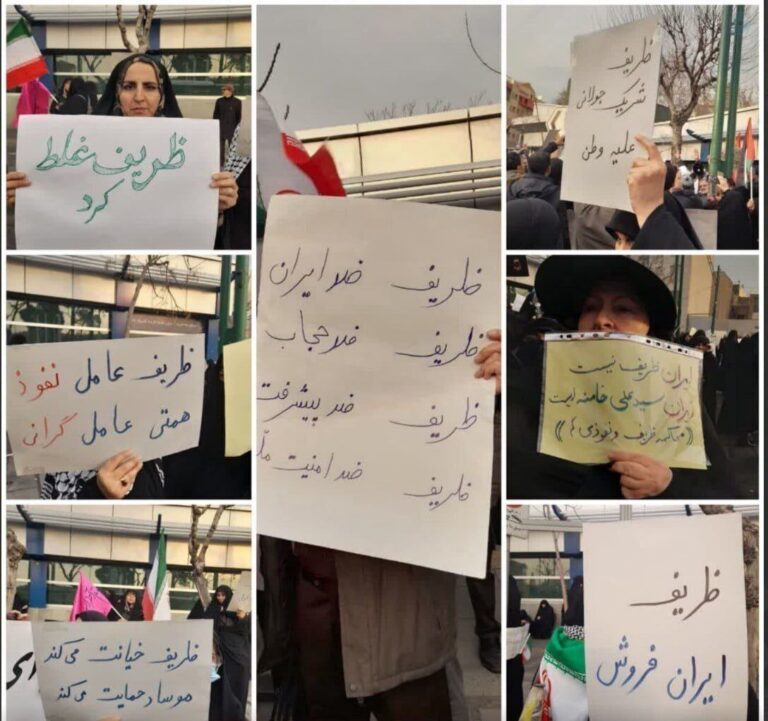 ظریف غلط
کرد
ظریف
تشریک جولانی
علیه وطن
ظریف ضد ایران
ظریف ضد حجاب
ظریف ضد پیشرفت
ظریف ضد امنیت
ظریف عامل نفوذ
همتی عامل گرانی
ایران ظریف نیست
ایران سید علی خامنه ایست
ظریف و نفوذی
ظریف خیانت می‌کند
موساد حمایت می‌کند
ظریف
ایران فروش